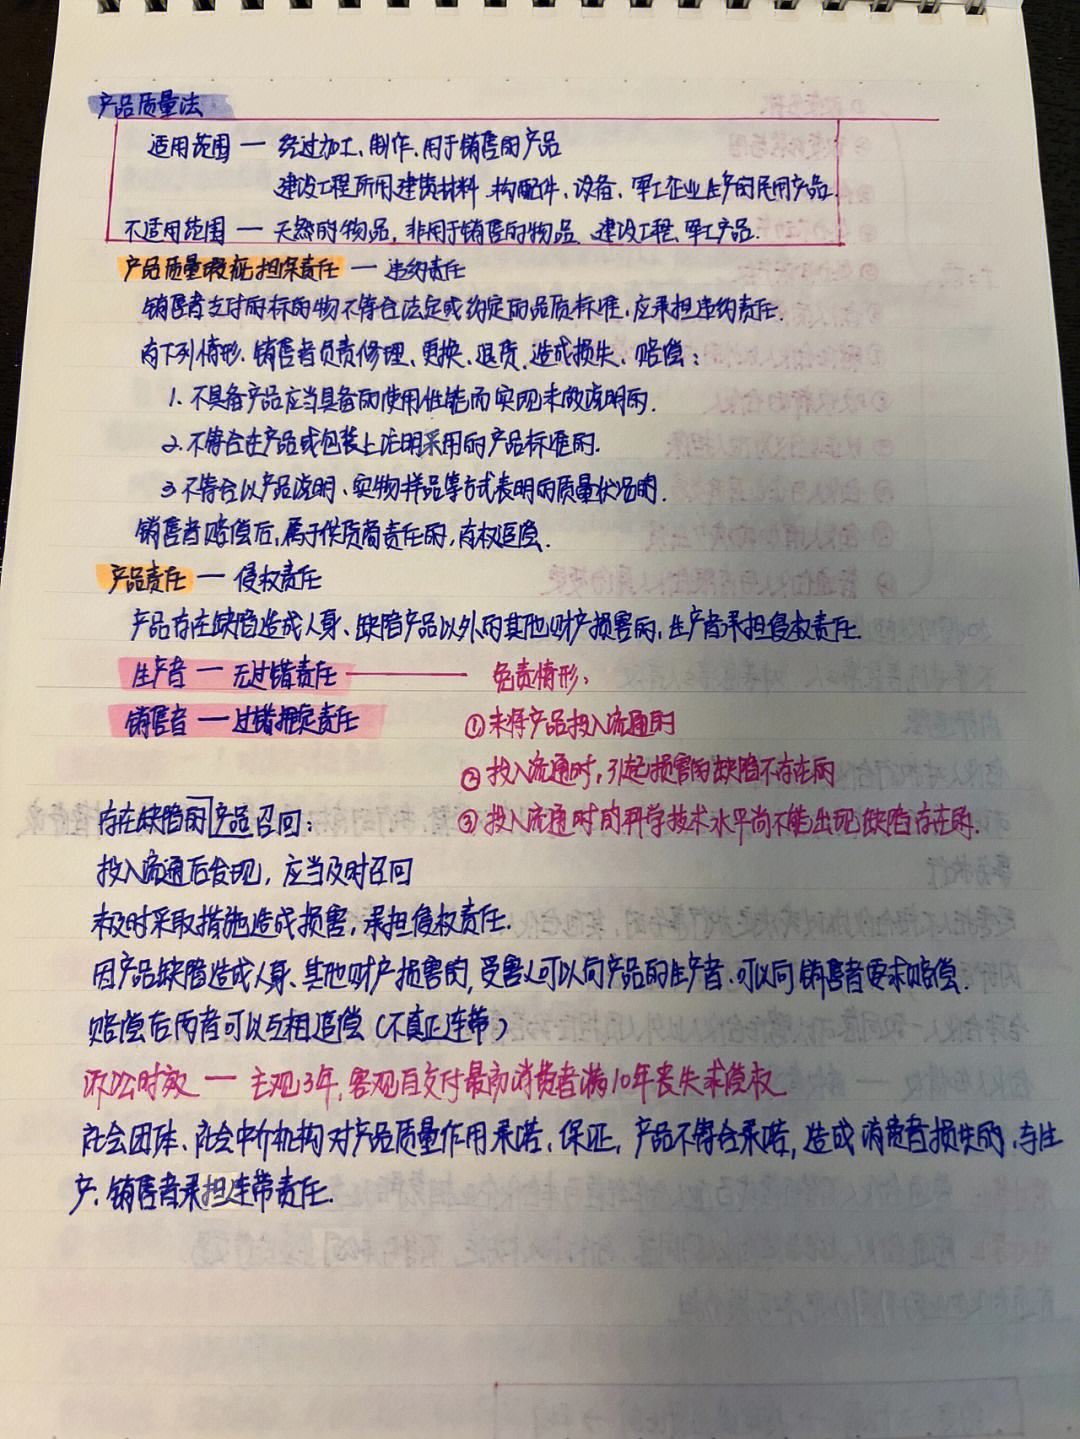 产品质量法
适用范围 — 经过加工、制作、用于销售的产品
建设工程所用建筑材料、构配件、设备、军工企业生产的民用产品
不适用范围 — 天然的物品,非用于销售的物品、建设工程、军工产品.
产品质量瑕疵担保责任 — 违约责任
销售者支付的标的物不符合法定或约定的品质标准,应承担违约责任.
有下列情形,销售者负责修理、更换、退货,造成损失、赔偿:
1. 不具备产品应当具备的使用性能而实现未做说明的.
2. 不符合在产品或包装上注明采用的产品标准的.
3. 不符合以产品说明、实物样品等方式表明的质量状况的.
销售者赔偿后,属于供货商责任的,有权追偿.
产品责任 — 侵权责任
产品存在缺陷造成人身、缺陷产品以外的其他财产损害的,生产者承担侵权责任.
生产者 — 无过错责任 — 免责情形:
销售者 — 过错推定责任 ①未将产品投入流通的
②投入流通时,引起损害的缺陷不存在的
存在缺陷的产品召回: ③投入流通时的科学技术水平尚不能出现缺陷存在的.
投入流通后发现,应当及时召回
未及时采取措施造成损害,承担侵权责任.
因产品缺陷造成人身、其他财产损害的,受害人可以向产品的生产者、可以向销售者要求赔偿.
赔偿后两者可以互相追偿(不真正连带)
诉讼时效 — 主观3年,客观自交付最初消费者满10年丧失求偿权
社会团体、社会中介机构对产品质量作用承诺、保证,产品不符合承诺,造成消费者损失的,与生
产、销售者承担连带责任.